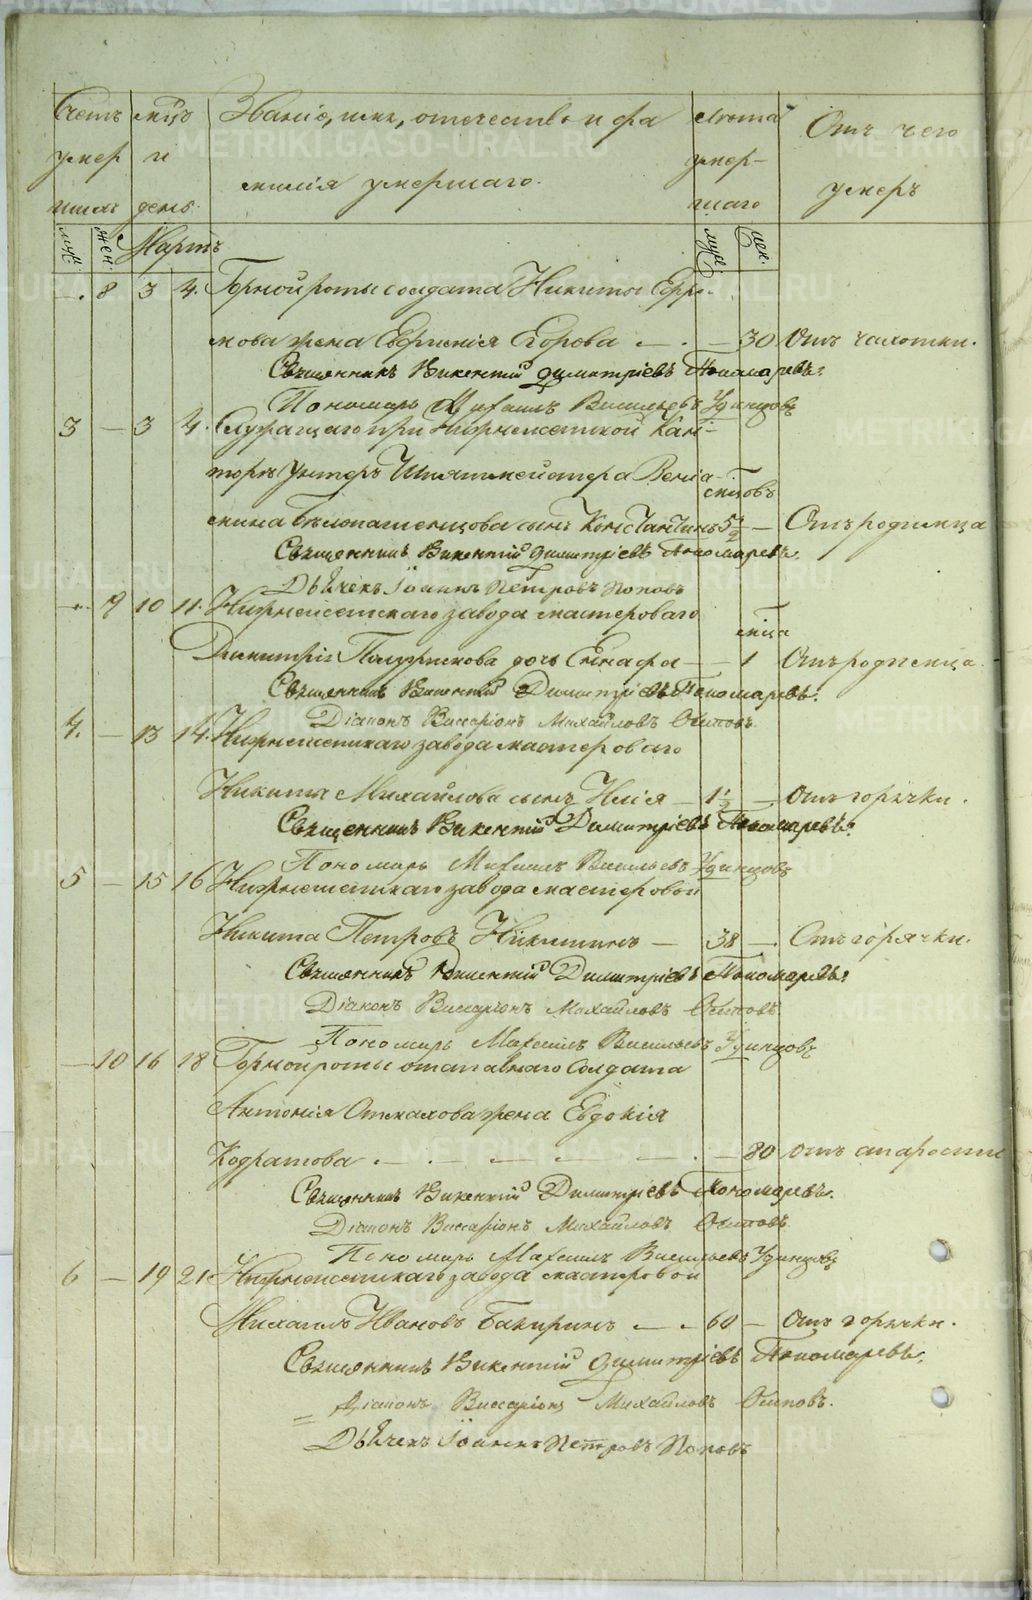 Счетъ мѣсцъ Званіе, имя, отечество и фа лѣта Отъ чего
умер и милія умершаго. умер- умеръ
шихъ день. шаго
муж. жен. Мартъ муж. жен.
— 8 3 4. Горной роты солдата Никиты Ефи-
мова жена Евгенія Егорова — — 30 Отъ чахотки.
Священникъ Викентій Димитріевъ Пономаревъ.
Пономарь Михаилъ Васильевъ Удинцовъ
3 — 3 4. Служащаго при Нижнеисетской Кан-
торѣ Унтеръ Шихтмейстера Веніа-
мѣсцовъ
мина Бѣлопашенцова сынъ Константинъ 5½ — Отъ родимца
Священникъ Викентій Димитріевъ Пономаревъ.
Дьячекъ Іоаннъ Петровъ Поповъ
— 9 10 11. Нижнеисетскаго завода мастероваго
мѣсца
Димитрія дочь — — 1 Отъ родимца.
Священникъ Викентій Димитріевъ Пономаревъ.
Діаконъ Виссаріонъ Михайловъ Осиповъ
4. — 13 14. Нижнеисетскаго завода мастероваго
Никиты Михайлова сынъ Илія — 1½ — Отъ горячки.
Священникъ Викентій Димитріевъ Пономаревъ.
Пономарь Михаилъ Васильевъ Удинцовъ
5 — 15 16 Нижнеисетскаго завода мастеровой
Никита Петровъ Никитинъ — 38 — Отъ горячки.
Священникъ Викентій Димитріевъ Пономаревъ.
Діаконъ Виссаріонъ Михайловъ Осиповъ.
Пономарь Михаилъ Васильевъ Удинцовъ
— 10 16 18 Горной роты отставнаго солдата
Антонія жена Евдокія
Кодратова — — — — — 80 отъ старости
Священникъ Викентій Димитріевъ Пономаревъ.
Діаконъ Виссаріонъ Михайловъ Осиповъ.
Пономарь Михаилъ Васильевъ Удинцовъ
6 — 19 21 Нижнеисетскаго завода мастеровой
Михаилъ Ивановъ Бакиринъ — — 60 — Отъ горячки.
Священникъ Викентій Димитріевъ Пономаревъ.
Діаконъ Виссаріонъ Михайловъ Осиповъ.
Дьячекъ Іоаннъ Петровъ Поповъ
METRIKI.GASO-URAL.RU